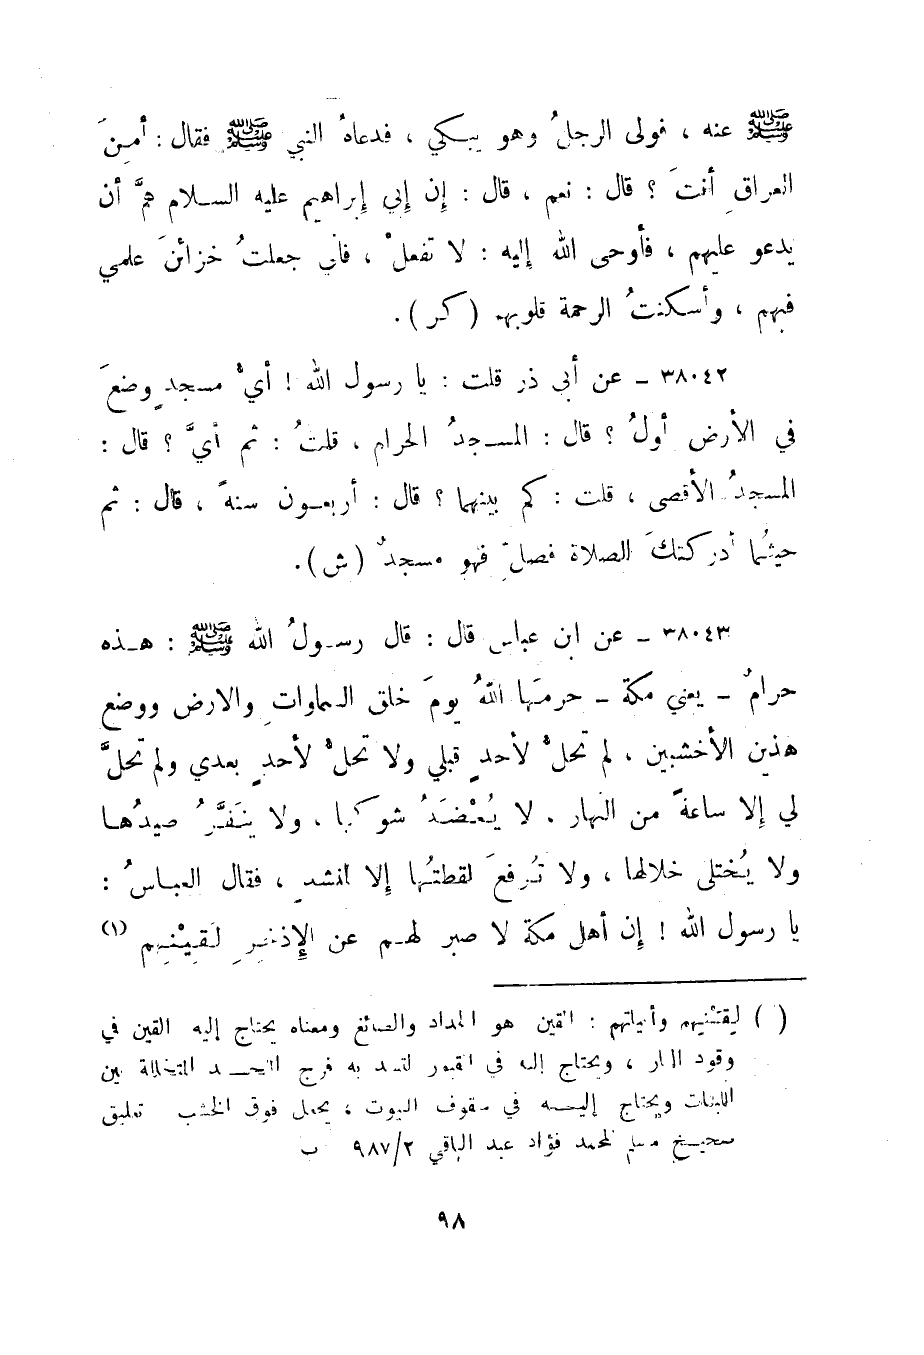 ﷺ عنه ، فولى الرجلُ وهو يبكي ، فدعاهُ النبي ﷺ فقال : أمِنَ
العراقِ أنتَ ؟ قال : نعم ، قال : إن إبي إبراهيم عليه السلام همَّ أن
يدعو عليهم ، فأوحى الله إليه : لا تفعلْ ، فأني جعلتُ خزائنَ علمي
فيهم ، وأسكنتُ الرحمة قلوبهم ( كر ) .
٣٨٠٤٢ ـ عن أبي ذر قلت : يا رسول الله ! أيْ مسجدٍ وضعَ
في الأرض أولُ ؟ قال : المسجدُ الحرام ، قلتُ : ثم أيَّ ؟ قال :
المسجدُ الأقصى ، قلت : كم بينهما ؟ قال : أربعون سنةً ، قال : ثم
حيثُما أدركتكَ الصلاة فصلِّ فهو مسجدٌ ( ش ) .
٣٨٠٤٣ ـ عن ابن عباس قال : قال رسولُ الله ﷺ : هذه
حرامٌ ـ يعني مكة ـ حرمَها اللهُ يومَ خلق السماوات والارض ووضع
هذين الأخشبين ، لم تحلْ لأحدٍ قبلي ولا تحلْ لأحدٍ بعدي ولم تحلَّ
لي إلا ساعةً من النهار . لا يُعْضَدُ شوكها ، ولا ينَفَّرُ صيدُها
ولا يُختلى خلالها ، ولا تُرفعَ لقطتُها إلا لمنشدٍ ، فقال العباسُ :
يا رسول الله ! إن أهل مكة لا صبر لهم عن الإذخرِ لقَينْهِم (١)
( ) ليقَيْنهم وأبياتهم : القين هو الحداد والصائغ ومعناه يحتاج إليه القين في
وقود النار ، ويحتاج إليه في القبور لتسد به فرج اللحد المتخللة بين
اللبنات ويحتاج إليه في سقوف البيوت ، يجعل فوق الخشب تعليق
صحيح مسلم لمحمد فؤاد عبد الباقي ٩٨٧/٢ ب
٩٨